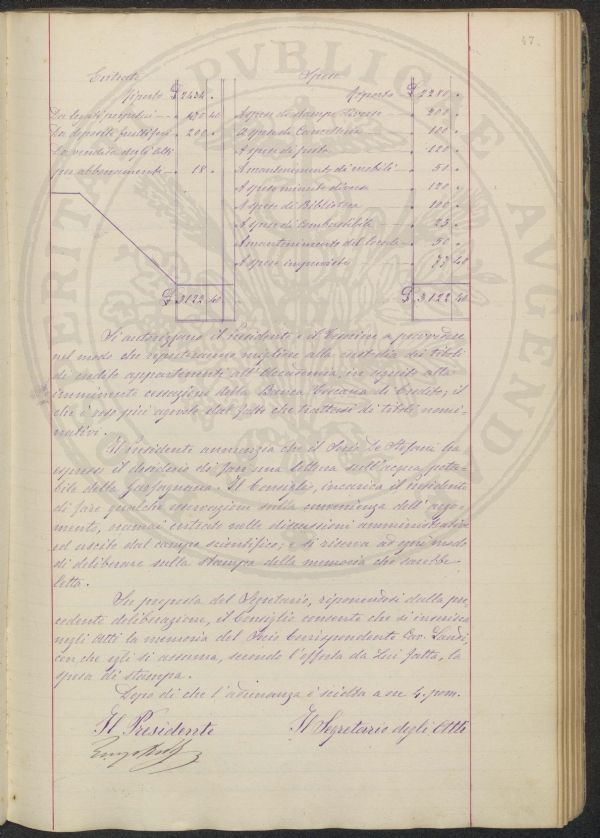 47.
Entrate Spese
Riporto £ 2434 " Riporto £ 2280 "
Da A spese di stampe diverse 200 "
Da depositi fruttiferi 200 " A spese di Cancelleria 100 "
La vendita degli Atti A spese di posta 120 "
per abbonamento 18 " A mantenimento di mobili 50 "
A spese minute diverse 120 "
A spese di Biblioteca 100 "
A spese di Combustibile 25 "
A mantenimento del locale 50 "
A spese impreviste 77 40
£ 3122 40 £ 3122 40
Si autorizzano il Presidente e il a provvedere
nel modo che riputeranno migliore alla custodia dei titoli
di rendita appartenenti all'Accademia, in seguito alla
imminente cessazione della Banca Toscana di Credito; il
che è reso più agevole dal fatto che trattasi di titoli nomi-
nativi.
Il Presidente annunzia che il Socio De Stefani ha
espresso il desiderio di fare una lettura sull'acqua pota-
bile della Garfagnana. Il Consiglio, incarica il Presidente
di fare qualche osservazione sulla convenienza dell'argo-
mento, oramai entrato nelle discussioni amministrative
ed uscito dal campo scientifico; e si riserva ad ogni modo
di deliberare sulla stampa della memoria che sarebbe
letta.
Su proposta del Segretario, riponendosi dalla pre-
cedente deliberazione, il Consiglio consente che si inserisca
negli Atti la memoria del Socio Corrispondente Cav.
con che egli si assuma, secondo l'offerta da Lui fatta, la
spesa di stampa.
Dopo di che l'adunanza è sciolta a ore 4. pom.
Il Presidente Il Segretario degli Atti